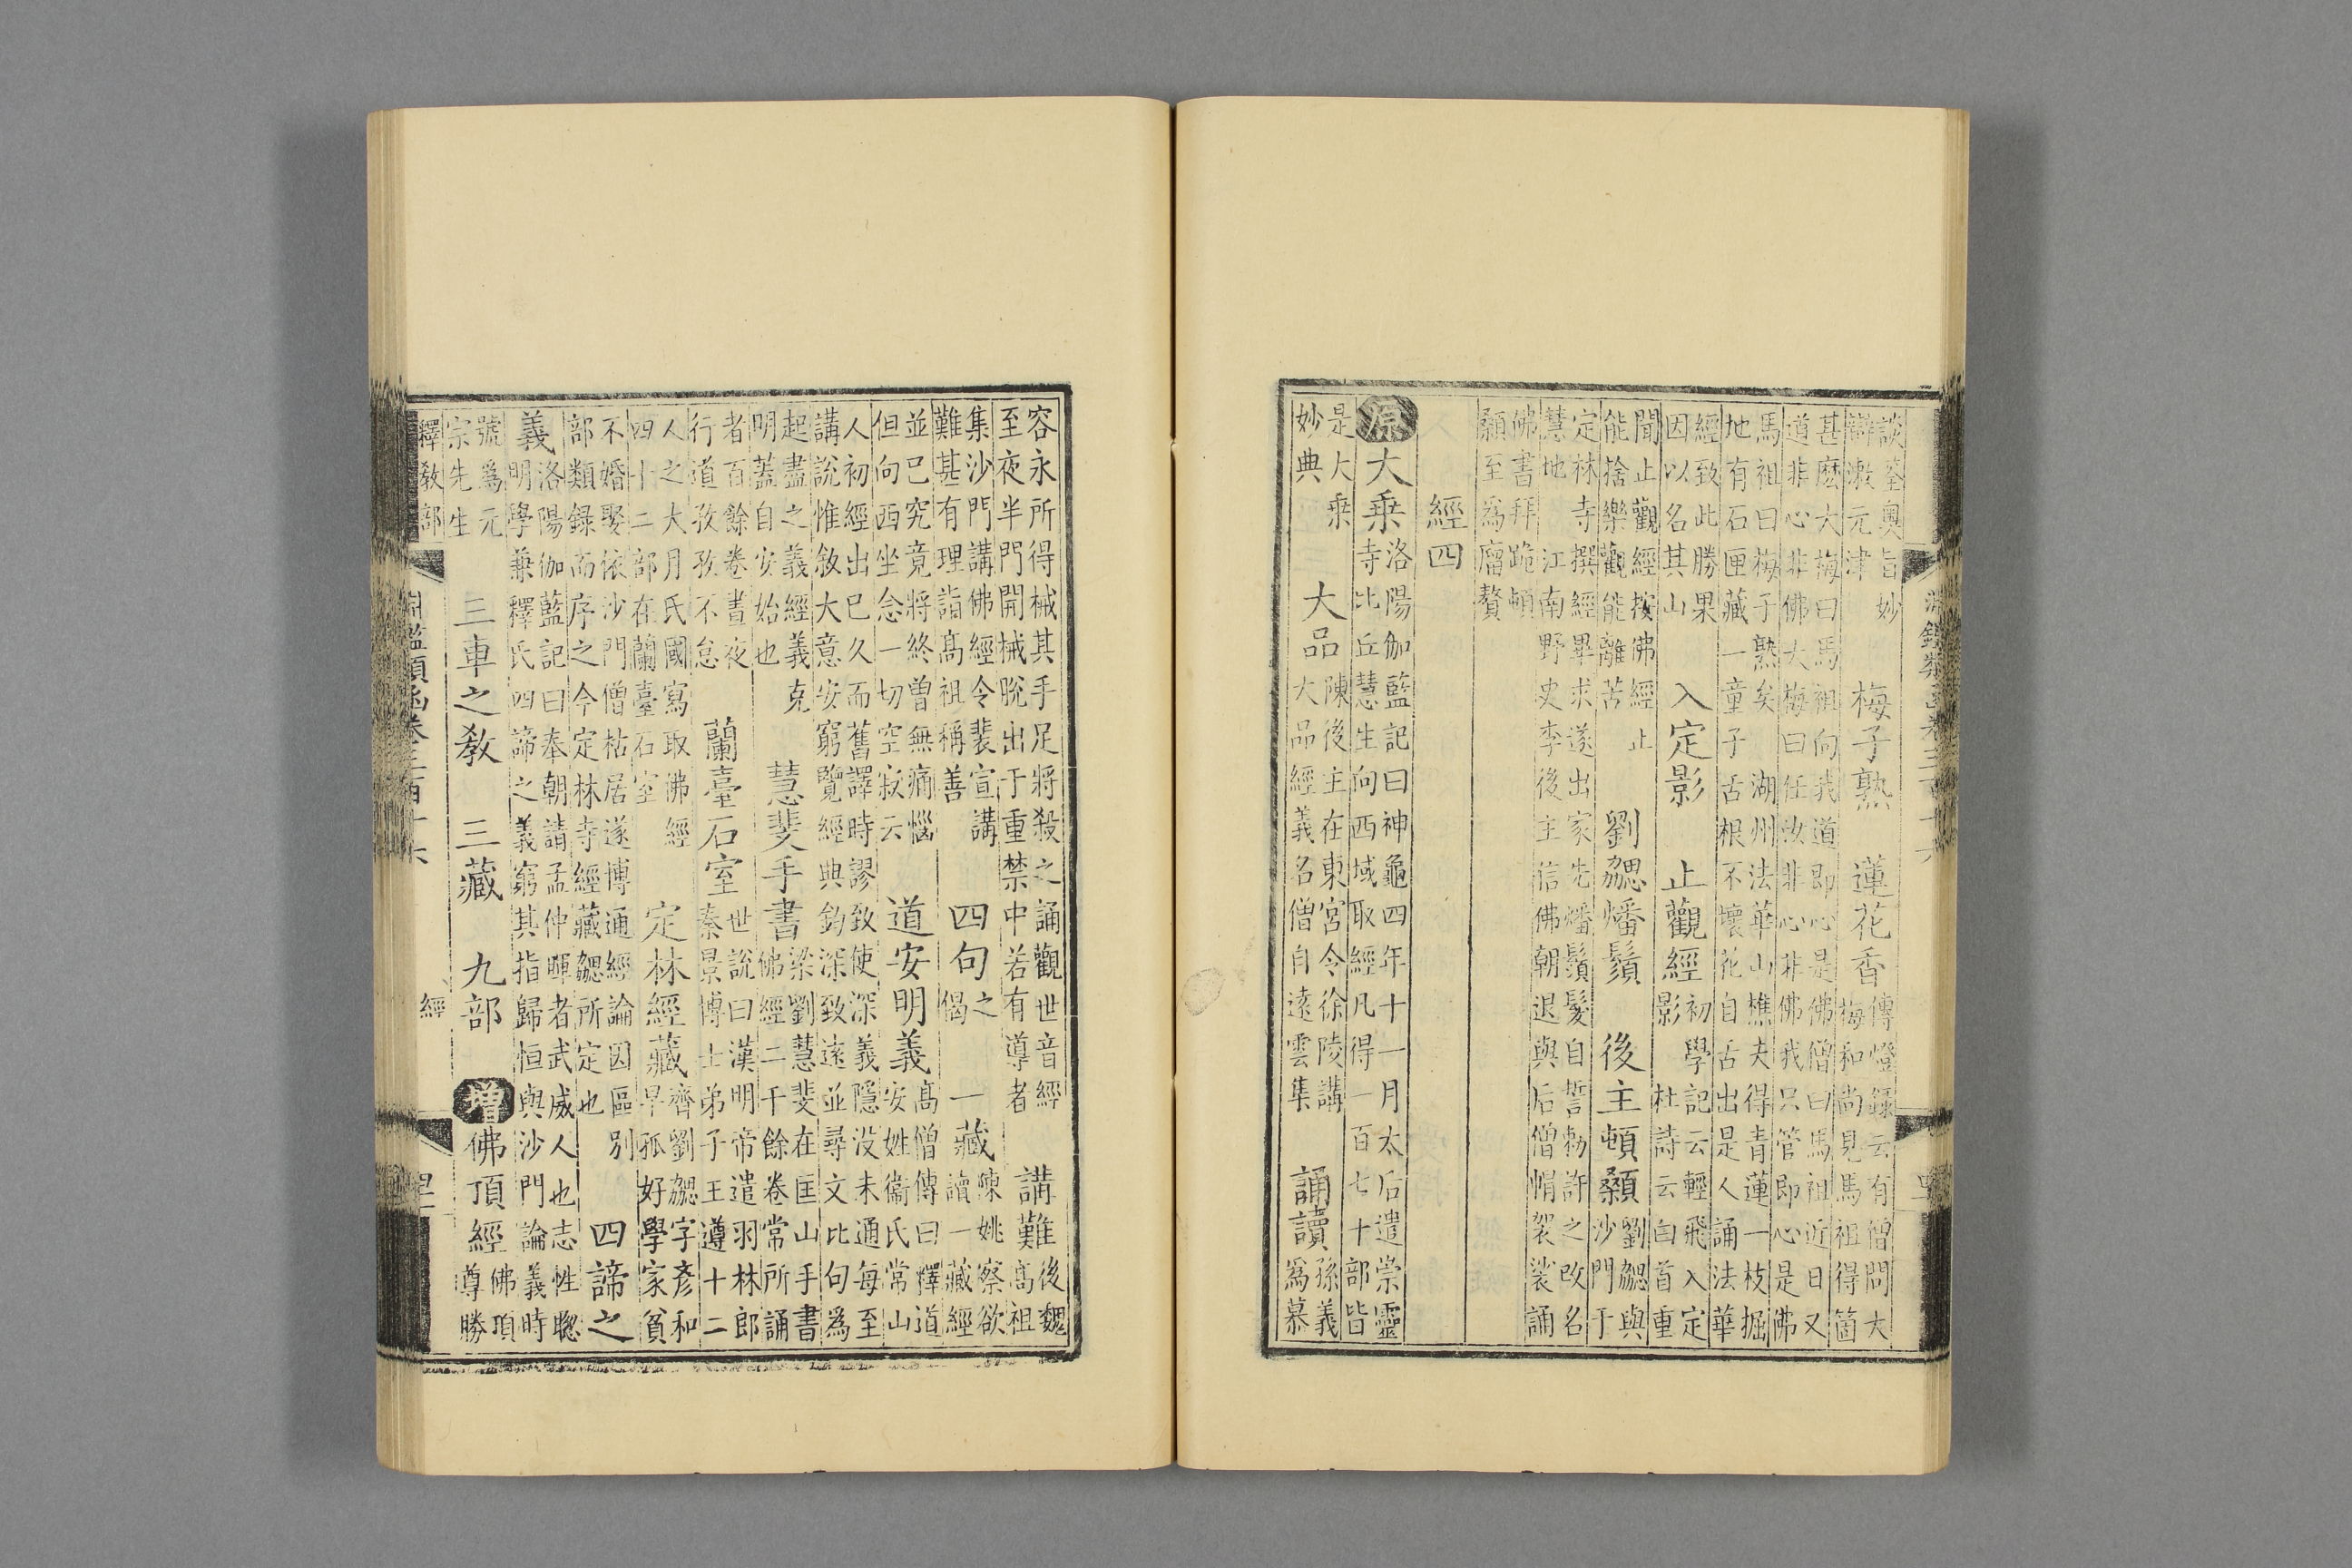 談荃奧旨妙
辯潄元津
梅子熟　蓮花香
傳燈錄云有僧問大
梅和尚見馬祖得箇
甚麽大梅曰馬祖向我道即心是佛僧曰馬祖近日又
道非心非佛大梅曰任汝非心非佛我只管即心是佛
馬祖曰梅子熟矣　湖州法華山樵夫得青蓮一枝掘
地有石匣藏一童子舌根不壞花自舌出是人誦法華
經致此勝果
因以名其山
入定影　止觀經
初學記云輕飛入定
影　杜詩云白首重
聞止觀經按佛經止
能捨樂觀能離苦
劉勰燔鬚　後主頓顙
劉勰與
沙門于
定林寺撰經畢求遂出家先燔鬚髮自誓勅許之改名
慧地　江南野史李後主信佛朝退與后僧帽袈裟誦
佛書拜跪頓
顙至爲瘤贅
經四
原大乗
洛陽伽藍記曰神龜四年十一月太后遣崇靈
寺比丘慧生向西域取經凡得一百七十部皆
是大乗
妙典
大品
陳後主在東宮令徐陵講
大品經義名僧自遠雲集
誦讀
孫義
爲慕
容永所得械其手足將殺之誦觀世音經
至夜半門開械脫出于重禁中若有導者
講難
後魏
髙祖
集沙門講佛經令裴宣講
難甚有理詣髙祖稱善
四句
之
偈
一藏
陳姚察欲
讀一藏經
並巳究竟將終曽無痛惱
但向西坐念一切空寂云
道安明義
髙僧傳曰釋道
安姓衞氏常山
人初經出巳久而舊譯時謬致使深義隱没未通每至
講說惟敘大意安窮覽經典鈎深致遠並尋文比句爲
起盡之義經義克
明蓋自安始也
慧斐手書
梁劉慧斐在匡山手書
佛經二千餘卷常所誦
者百餘卷晝夜
行道孜孜不怠
蘭臺石室
世說曰漢明帝遣羽林郎
秦景博士弟子王遵十二
人之大月氏國寫取佛經
四十二部在蘭臺石室
定林經藏
齊劉勰字彥和
早孤好學家貧
不婚娶依沙門僧枯居遂博通經論因區别
部類錄而序之今定林寺經藏勰所定也
四諦之
義
洛陽伽藍記曰奉朝請孟仲暉者武威人也志性聦
明學兼釋氏四諦之義窮其指歸恒與沙門論義時
號爲元
宗先生
三車之教　三藏　九部　增佛頂經
佛項
尊勝
釋教部
淵鑑類函卷三百十六
經